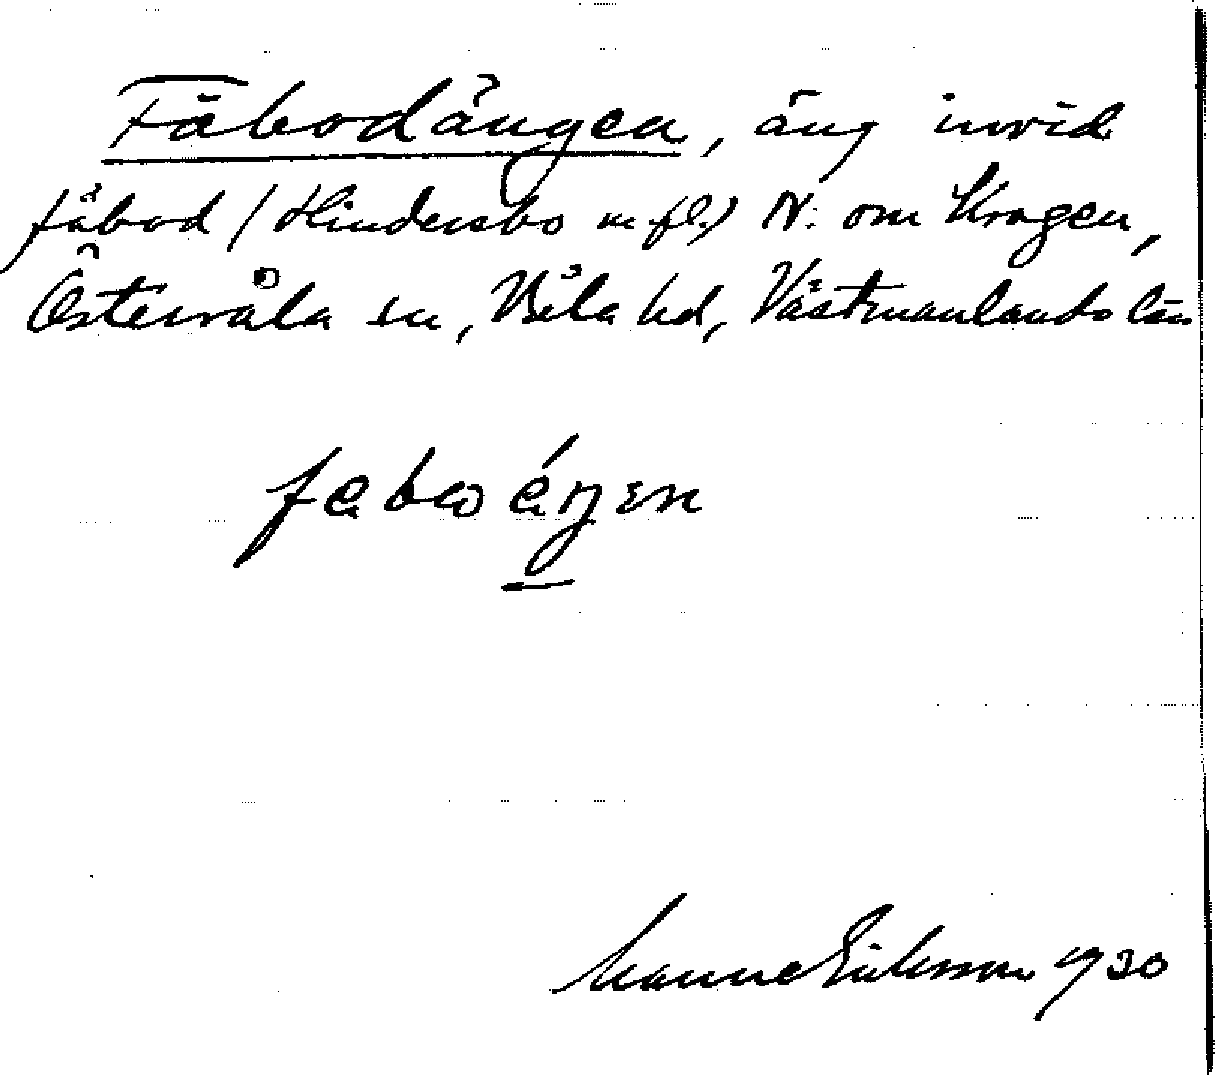 Fäbodängen, äng invid
fäbod (Hindersbo m fl.) N. om Kragen,
Östervåla sn, Våla hd, Västmanlands län
febωéŋen
Manne Eriksson 1930